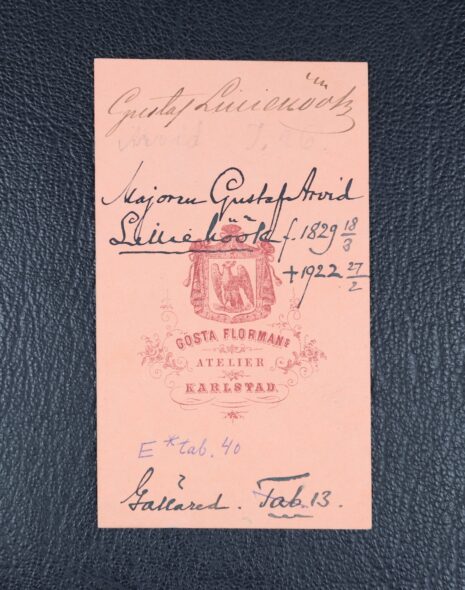 Gustaf Lilliehöök
Arvid T. 26.
Majoren Gustaf Arvid
Lilliehöök f. 1829 18/3
+1922 27/2
GÖSTA FLORMANS
ATELIER
KARLSTAD.
E * tab. 40
Gällared. Tab. 13.